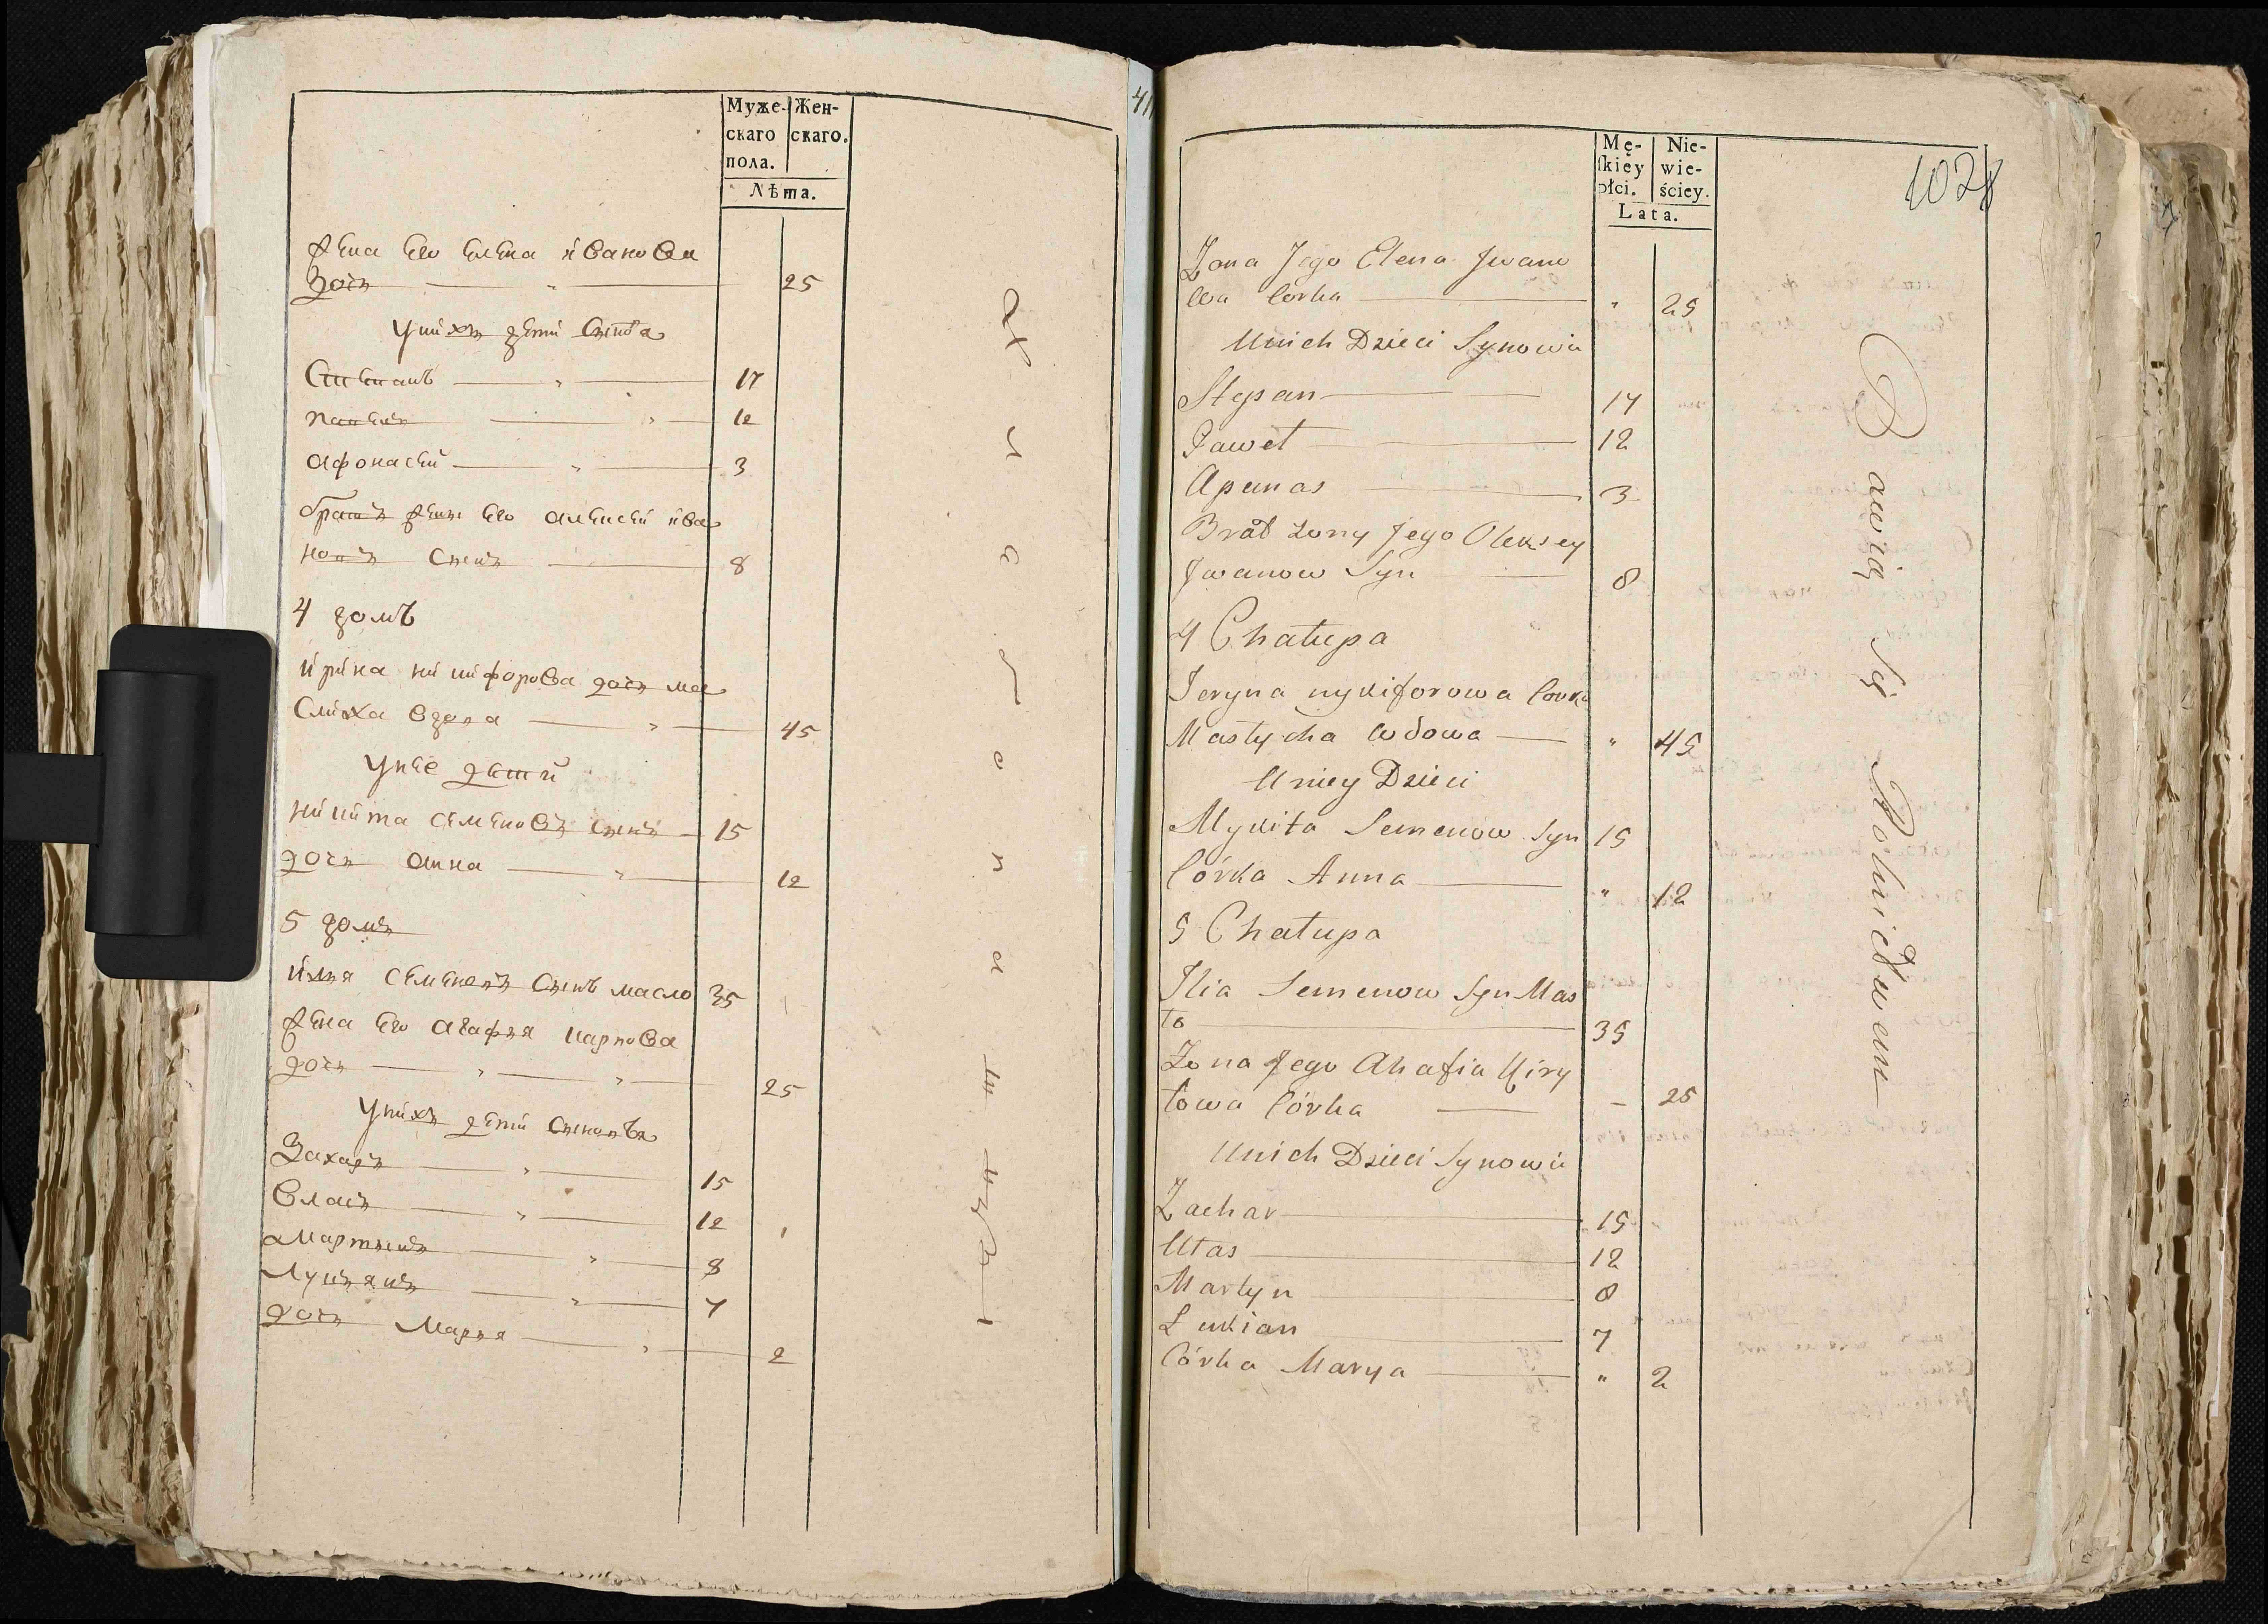 Муже-
скаго
пола.
Жен-
скаго.
Лѣта.
жена его елена иванова
дочъ " 25
унихъ дети сынова
Степанъ " 17
павелъ " 12
афонасей " 3
братъ жены его алексей ива
новъ сынъ 8
4 домъ
ирина никифорова дочъ ма
слиха вдова " 45
унее дети
никита семеновъ сынъ 15
дочъ анна " 12
5 домъ
илья семеновъ сынъ масло 35
жена его агафья карпова
дочъ " " 25
унихъ дети сыновья
Захаръ " 15
власъ " 12
мартынъ " 8
Лукьянъ " 7
дочъ Марья " 2
41
Mę-
skiey
płci.
Nie-
wie-
ściey.
Lata.
Zona Jego Elena Jwano
wa Corka " 25
Unich Dzieci Synowie
Stepan 17
Paweł 12
Apanas 3
Brat zony Jego Olexsey
Jwanow Syn 8
4 Chałupa
Jeryna nykiforowa Corka
Maslycha wdowa " 45
Uniey Dzieci
Mykita Semenow Syn 15
Córka Anna " 12
5 Chałupa
Ilia Semenow Syn Mas
ło 35
Zona Jego Ahafia Kiry
łowa Córka – 25
Unich Dzieci Synowie
Zachar 15
Ułas 12
Martyn 8
Lukian 7
Córka Marya " 2
Bawią Się Rolnictwem
1028